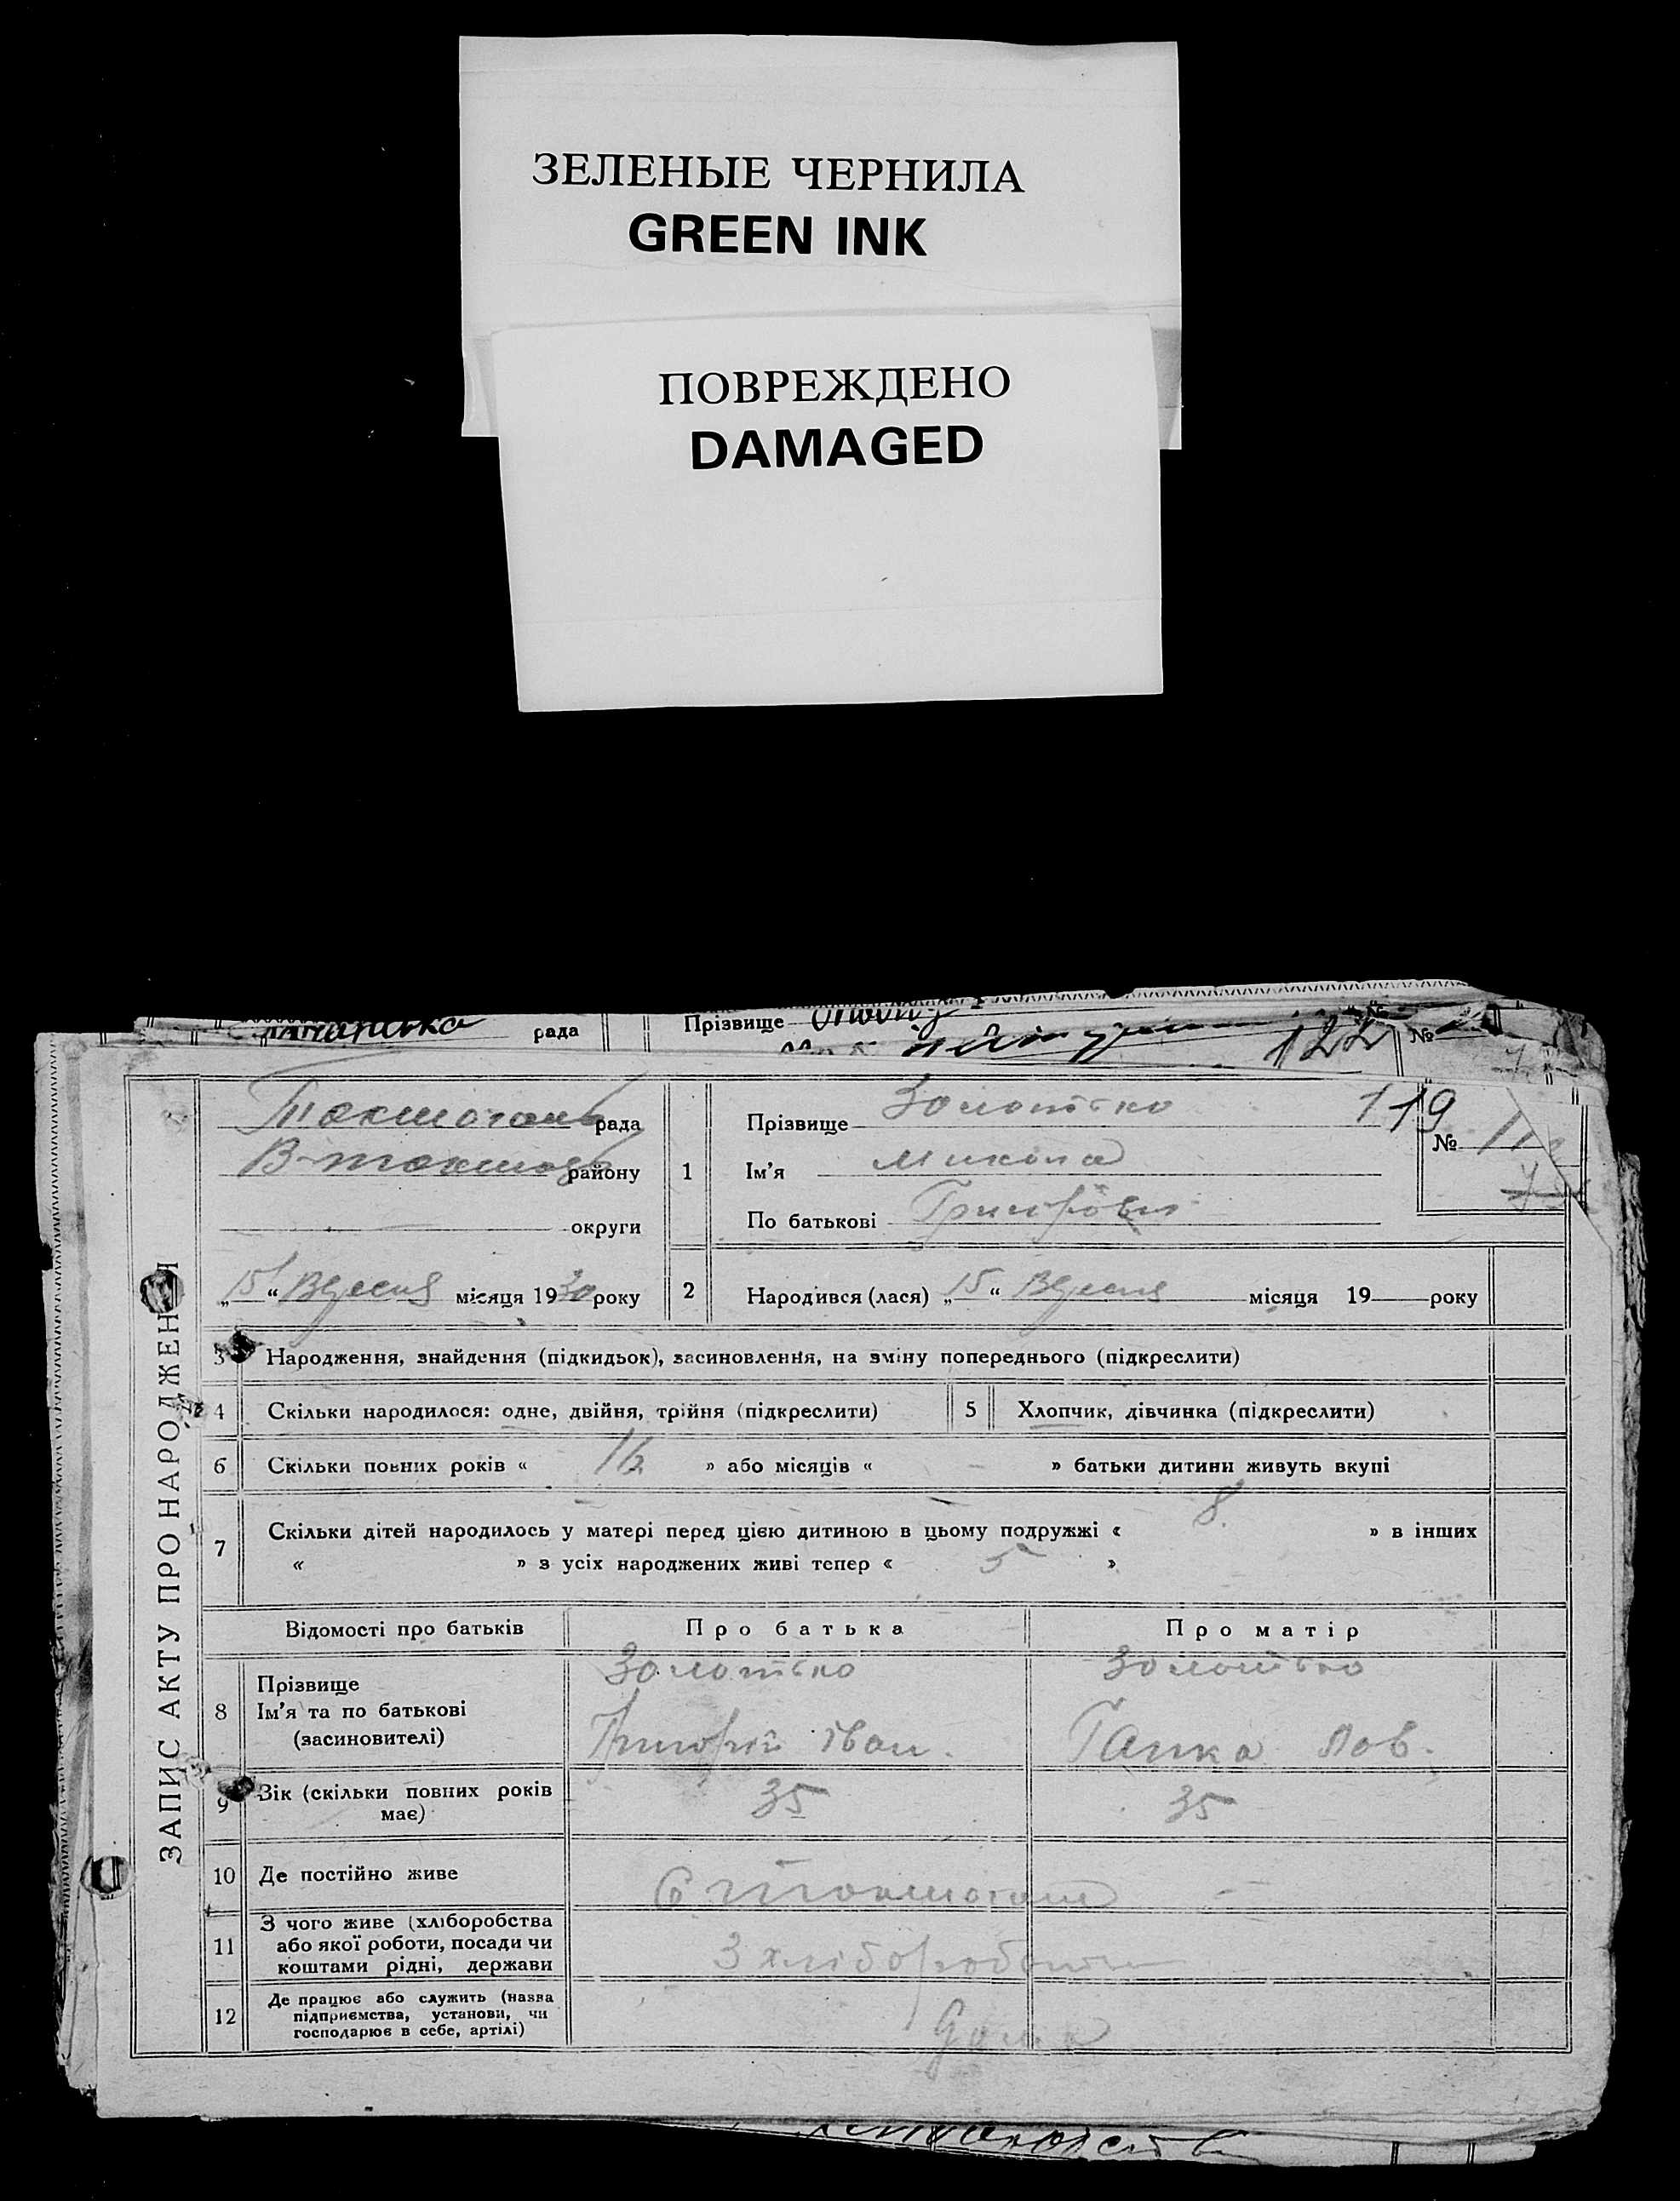 ЗЕЛЕНЫЕ ЧЕРНИЛА
GREEN INK
ПОВРЕЖДЕНО
DAMAGED
рада Прізвище №
122 №
ЗАПИС АКТУ ПРО НАРОДЖЕННЯ
рада
району
округи
„15“ Вересня місяця 1930 року
1 Прізвище Золотько 119
№
Ім'я Микола
По батькові
2 Народився (лася) „15“ Вересня місяця 19 року
3 Народження, знайдення (підкидьок), засиновлення, на зміну попереднього (підкреслити)
4 Скільки народилося: одне, двійня, трійня (підкреслити) 5 Хлопчик, дівчинка (підкреслити)
6 Скільки повних років « 16 » або місяців « - » батьки дитини живуть вкупі
7 Скільки дітей народилось у матері перед цією дитиною в цьому подружжі « 8 » в інших
« » з усіх народжених живі тепер « 5 »
Відомості про батьків Про батька Про матір
8 Прізвище Золотько Золотько
Ім'я та по батькові Григорій Іван. Ганка
(засиновителі)
9 Зік (скільки повних років має) 35 35
10 Де постійно живе
11 З чого живе (хліборобства
або якої роботи, посади чи З хліборобства
коштами рідні, держави
12 Де працює або служить (назва
підприємства, установи, чи Дома
господарює в себе, артілі)